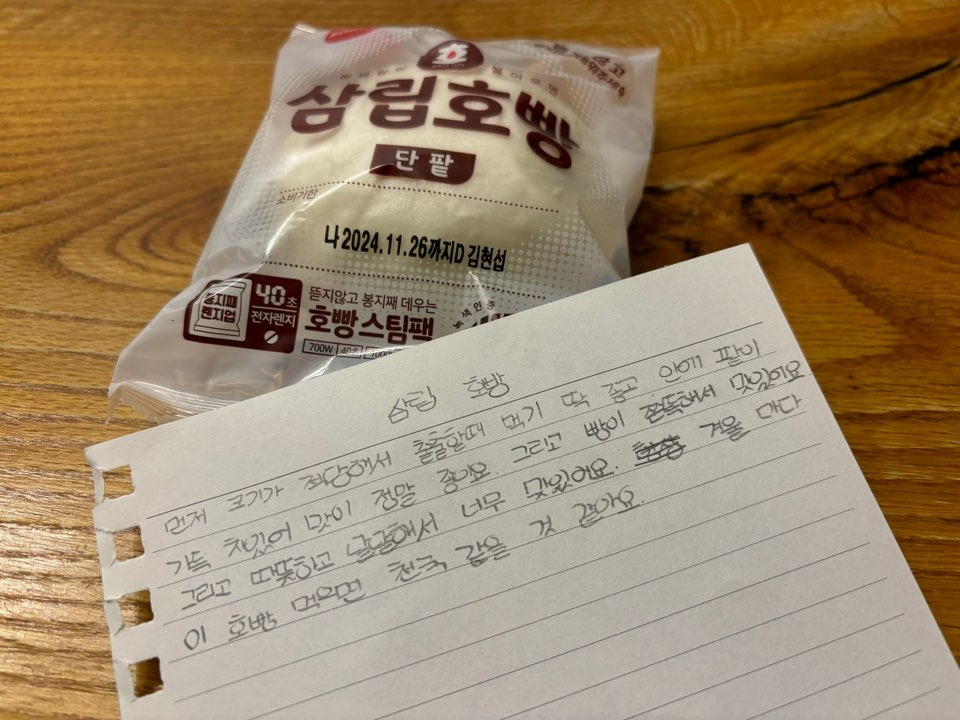 호
삼립호빵
단팥
소비기한
나 2024.11.26까지D 김현섭
봉지째
렌지업
40초
전자렌지
뜯지않고 봉지째 데우는
호빵스팀팩
700W 40초
삼립 호빵
먼저 크기가 적당해서 출출할때 먹기 딱 좋고 안에 팥이
가득 차있어 맛이 정말 좋아요. 그리고 빵이 쫀득해서 맛있어요
그리고 따뜻하고 달달해서 너무 맛있어요. 겨울 마다
이 호빵 먹으면 천국 같을 것 같아요.